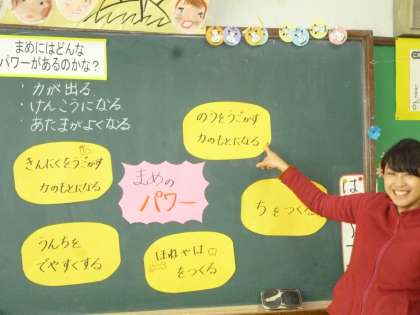 まめにはどんな
パワーがあるのかな？
・力が出る
・けんこうになる
・あたまがよくなる
のうをうごかす
力のもとになる
きんにくをうごかす
力のもとになる
まめの
パワー
ちをつくる
うんちを
でやすくする
ほねやは
をつくる